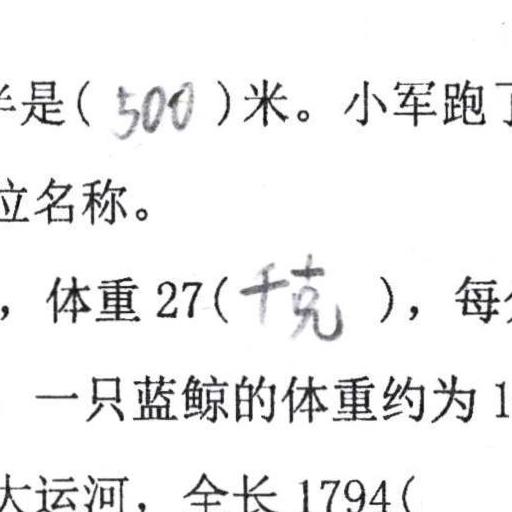 半是( 500 )米。小军跑了
位名称。
，体重 27( 千克 )，每分
一只蓝鲸的体重约为 1
大运河，全长 1794(